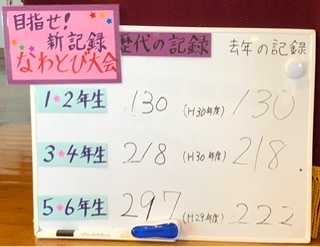 目指せ!
新記録
なわとび大会
歴代の記録 去年の記録
1・2年生 130 (H30年度) 130
3・4年生 218 (H30年度) 218
5・6年生 297 (H29年度) 222